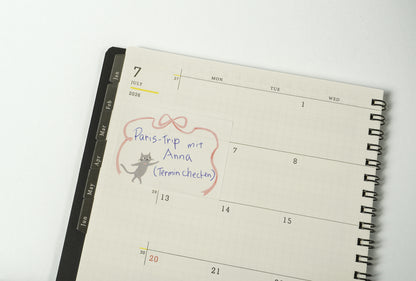 7
JULY
2026
27
MON
TUE
WED
1
Paris-Trip mit
Anna
(Termin checken)
7
8
29
13
14
15
30
20
21
Jan
Feb
Mar
Apr
May
Jun